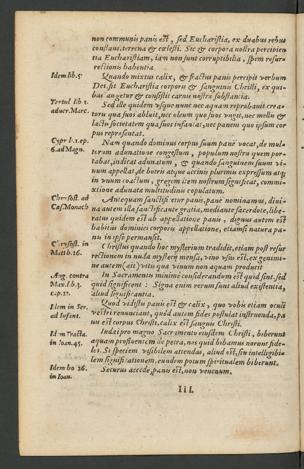 non communis panis est, sed Eucharistia, ex duabus rebus
constans, terrena & cœlesti. Sic & corpora nostra percipien
tia Eucharistiam, iam non sunt corruptibilia, spem resur
rectionis habentia.
Idem lib. 5
Quando mixtus calix, & fractus panis percipit verbum
Dei, fit Eucharistia corporis & sanguinis Christi, ex qui
bus augetur & consistit carnis nostræ substantia.
Tertul lib 1.
aduer. Marc.
Sed ille quidem vsque nunc nec aquam reprobauit crea
toris qua suos abluit, nec oleum quo suos vngit, nec mellis &
lactis societatem qua suos infantat, nec panem quo ipsum cor
pus repræsentat.
Cypr l. 1. ep.
6. ad Magn.
Nam quando dominus corpus suum panē vocat, de mul
torum adunatione congestum, populum nostrū quem por
tabat, indicat adunatum, & quando sanguinem suum vi
num appellat, de botris atque acinis plurimis expressum atq;
in vnum coactum, gregem item nostrum significat, commi-
xtione adunatæ multitudinis copulatum.
Chrysost. ad
Cæs. Monach
Antequam sanctificetur panis, panē nominamus, diui-
na autem illū sanctificante gratia, mediante sacerdote, libe-
ratus quidem est ab appellatione panis, dignus autem est
habitus dominici corporis appellatione, etiamsi natura pa-
nis in ipso permansit.
Chrysost. in
Matth. 26.
Christus quando hoc mysterium tradidit, etiam post resur
rectionem in nuda mysterij mensa, vino vsus est, ex genimi-
ne autem (ait) vitis quæ vinum non aquam producit
Aug. contra
Max. lib. 3.
c. p. 22.
In Sacramentis minime considerandum est quid sint, sed
quid significent: Signa enim rerum sunt aliud existentia,
aliud significantia.
Idem in Ser.
ad Infant.
Quod vidistis panis est & calix, quo vobis etiam oculi
vestri renunciant, quod autem fides postulat instruenda, pa-
nis est corpus Christi, calix est sanguis Christi.
Id. in Tracta.
in Ioan. 45.
Inde pro magno Sacramento eiusdem Christi, biberunt
aquam profluentem de petra, nos quid bibamus norunt fide-
les. Si speciem visibilem attendas, aliud est, sin intelligibi-
lem significationem, eundem potum spiritualem biberunt.
Idem ho 26.
in Ioan.
Securus accede, panis est, non venenum.
III.